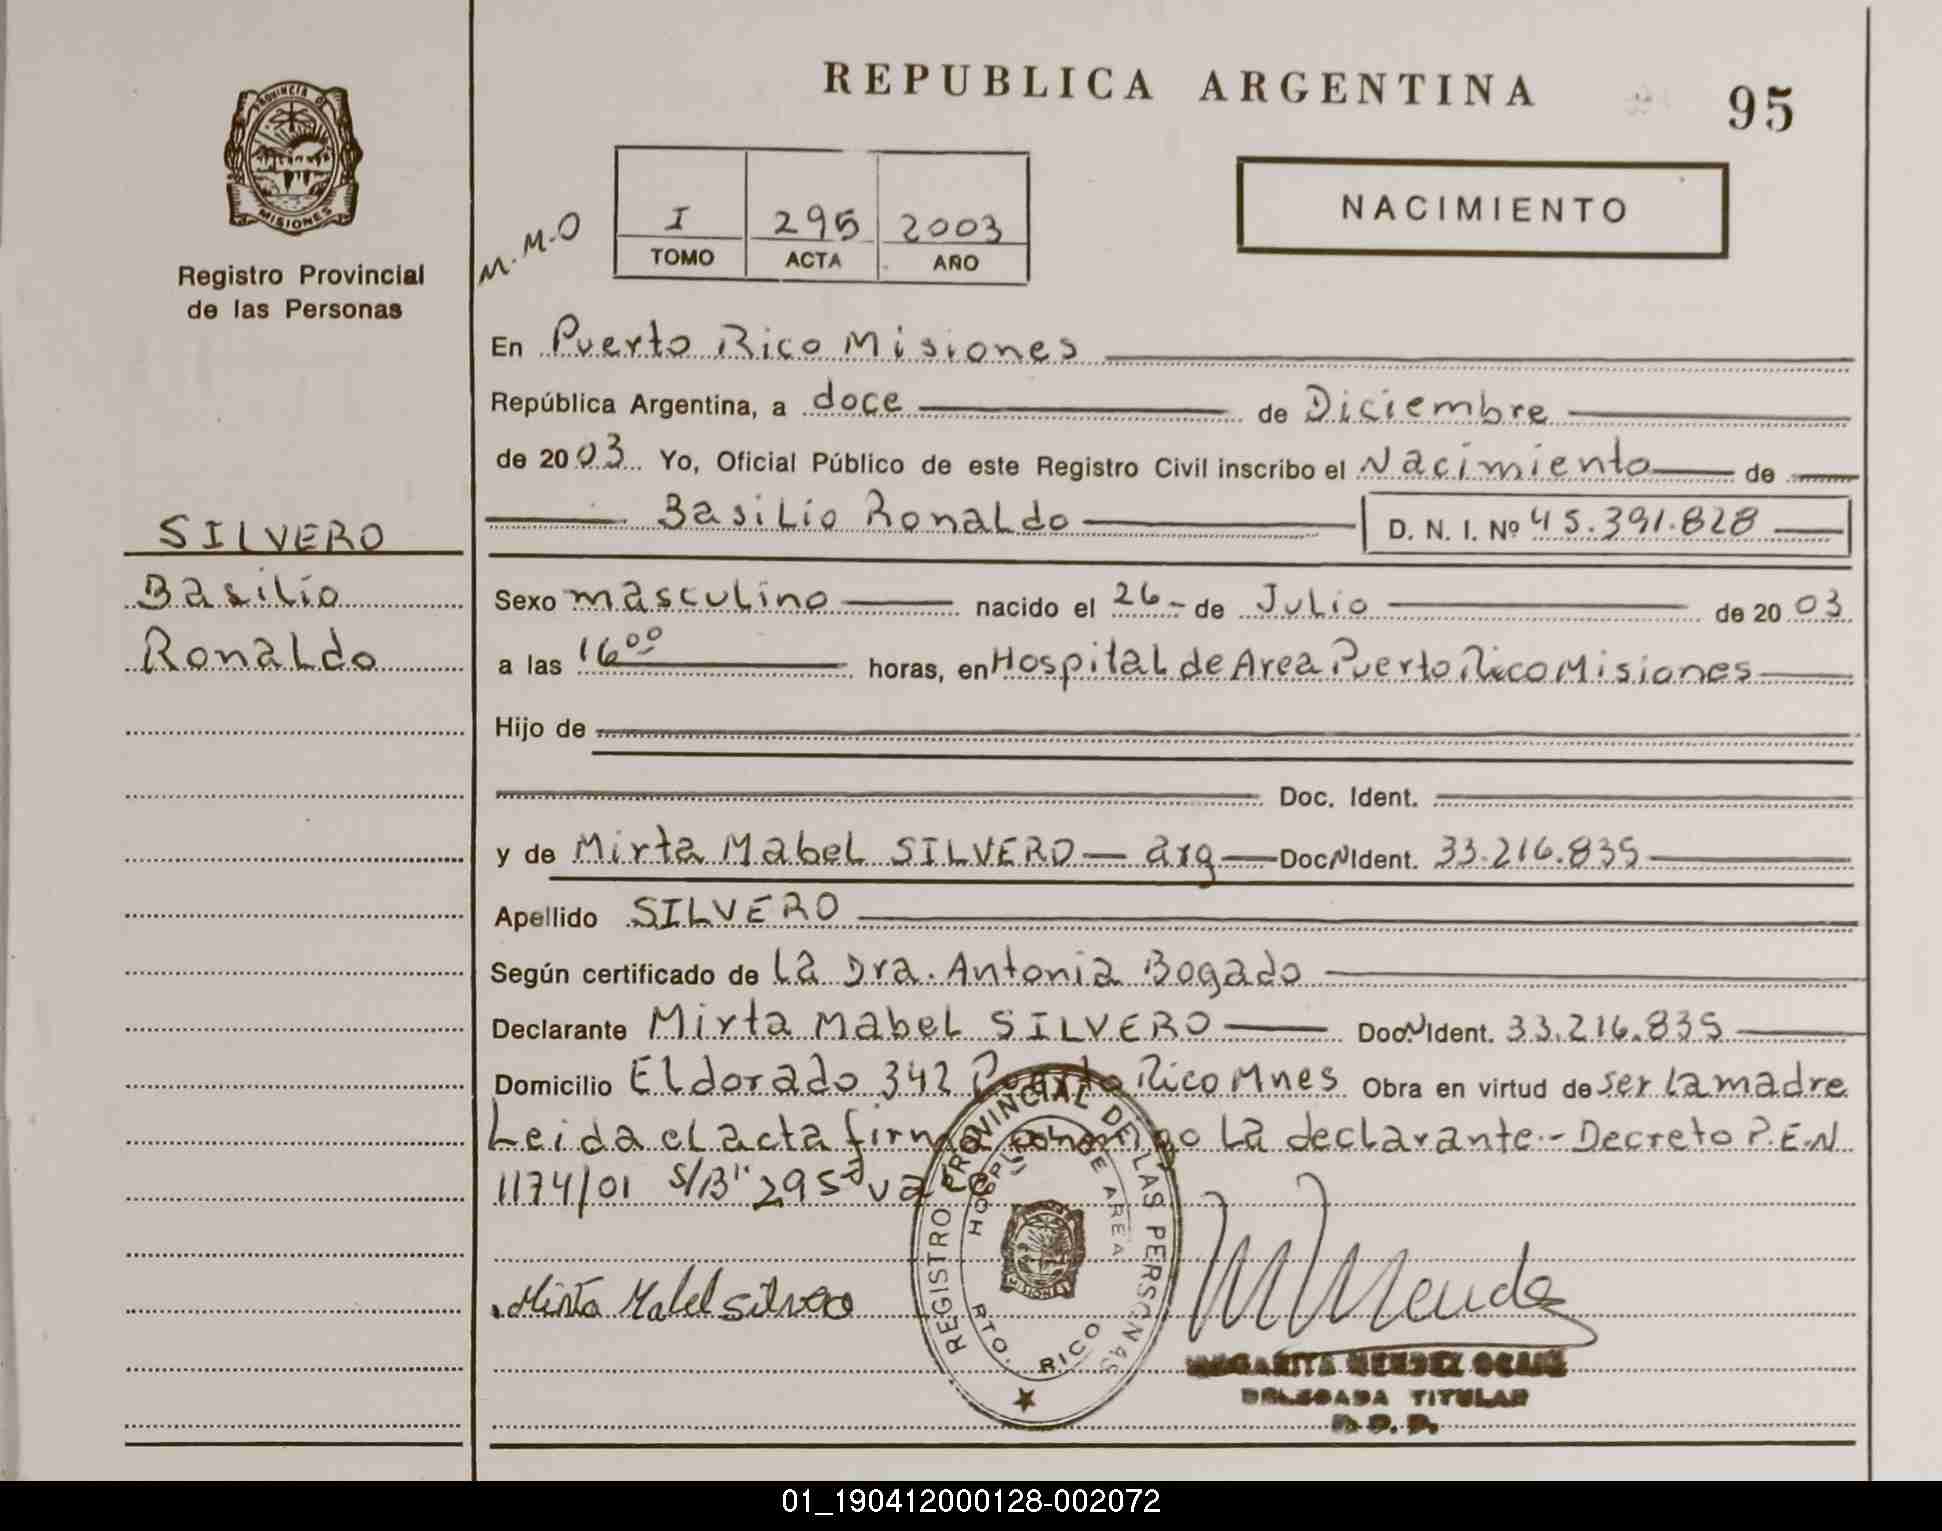 REPUBLICA ARGENTINA
95
PROVINCIA DE
MISIONES
Registro Provincial
de las Personas
M.M.O
I 295 2003
TOMO ACTA AÑO
NACIMIENTO
En Puerto Rico Misiones
República Argentina, a doce de Diciembre
de 2003 Yo, Oficial Público de este Registro Civil inscribo el Nacimiento de
Basilio Ronaldo D. N. I. Nº 45.391.828
SILVERO
Basilio
Ronaldo
Sexo masculino nacido el 26 - de Julio de 2003
a las 16⁰⁰ horas, en Hospital de Area Puerto Rico Misiones
Hijo de
Doc. Ident.
y de Mirta Mabel SILVERO — arg — Doc.N Ident. 33.216.835
Apellido SILVERO
Según certificado de La Dra. Antonia Bogado
Declarante Mirta Mabel SILVERO Doc.N Ident. 33.216.835
Domicilio Eldorado 342 Puerto Rico Mnes Obra en virtud de ser la madre
Leida el acta firma conmigo la declarante.- Decreto P.E.N
1174/01 S/B" 295
REGISTRO PROVINCIAL DE LAS PERSONAS
HOSPITAL DE AREA
MISIONES
PTO. RICO
Mirta Mabel Silvero
M Mendez
MARGARITA MENDEZ
DELEGADA TITULAR
01_190412000128-002072